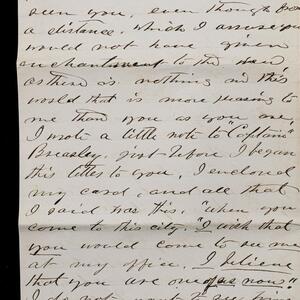 seen you, even though from
a distance, which I assure you
would not have given
enchantment to the view
as there is nothing in this
world that is more pleasing to
me than you as you are.
I wrote a little note to "Captain"
Breasley, just before I began
this letter to you, I enclosed
my card, and all that
I said was this, "when you
come to this city, I wish that
you would come to see me
at my office. I believe
that you are one of us now."
I do not want to